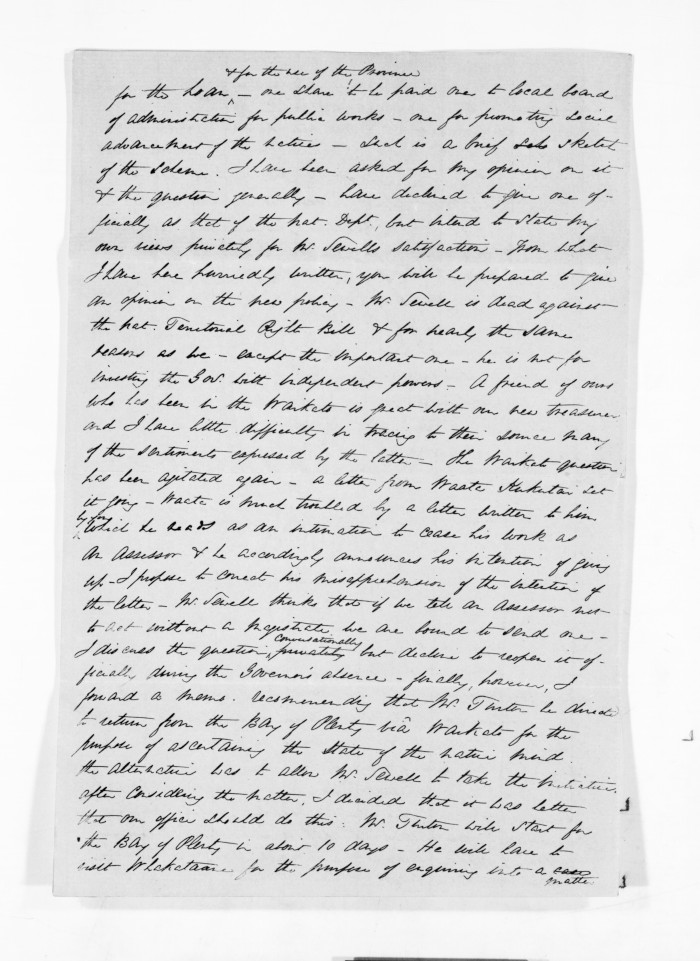 & for the use of the Province
for the loan, – one share to be paid one to local board
of administration for public works – one for promoting social
advancement of the natives – Such is a brief sketch
of the scheme. I have been asked for my opinion on it
& the question generally – have declined to give one of-
ficially as that of the Nat. Dept., but intend to state my
own views privately for Mr. Sewell's satisfaction – From what
I have here hurriedly written, you will be prepared to give
an opinion on the new policy – Mr. Sewell is dead against
the Nat. Territorial Right Bill & for nearly the same
reasons as we – except the important one – he is not for
investing the Gov. with independent powers – A friend of ours
who has been in the Waikato is great with our new treasurer
and I have little difficulty in tracing to their source many
of the sentiments expressed by the latter – The Waikato question
has been agitated again – a letter from Waata Kukutai set
it going – Waata is much troubled by a letter written to him
by you
which he reads as an intimation to cease his work as
an Assessor & he accordingly announces his intention of giving
up – I propose to correct his misapprehension of the intention of
the letter – Mr. Sewell thinks that if we tell an assessor not
to act without a Magistrate we are bound to send one –
conversationally
I discuss the question, privately but decline to reopen it of-
ficially during the Governor's absence – finally, however, I
forward a memo. recommending that Mr. Turton be directed
to return from the Bay of Plenty viâ Waikato for the
purpose of ascertaining the state of the native mind.
the alternative was to allow Mr. Sewell to take the initiative.
after considering the matter, I decided that it was better
that our office should do this. Mr. Turton will start for
the Bay of Plenty in about 10 days – He will have to
visit Whakatane for the purpose of enquiring into a case
matter